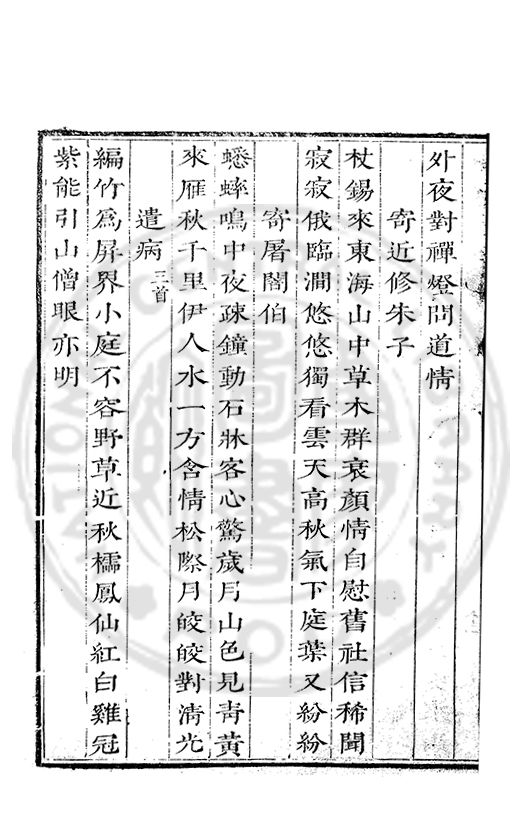 外夜對禪燈問道情
寄近修朱子
杖錫來東海山中草木群衰顏情自慰舊社信稀聞
寂寂俄臨澗悠悠獨看雲天高秋氣下庭葉又紛紛
寄屠闇伯
蟋蟀鳴中夜疎鐘動石牀客心驚歲月山色見靑黃
來雁秋千里伊人水一方含情松際月皎皎對淸光
遣病三首
編竹爲屏界小庭不容野草近秋櫺鳳仙紅白雞冠
紫能引山僧眼亦明